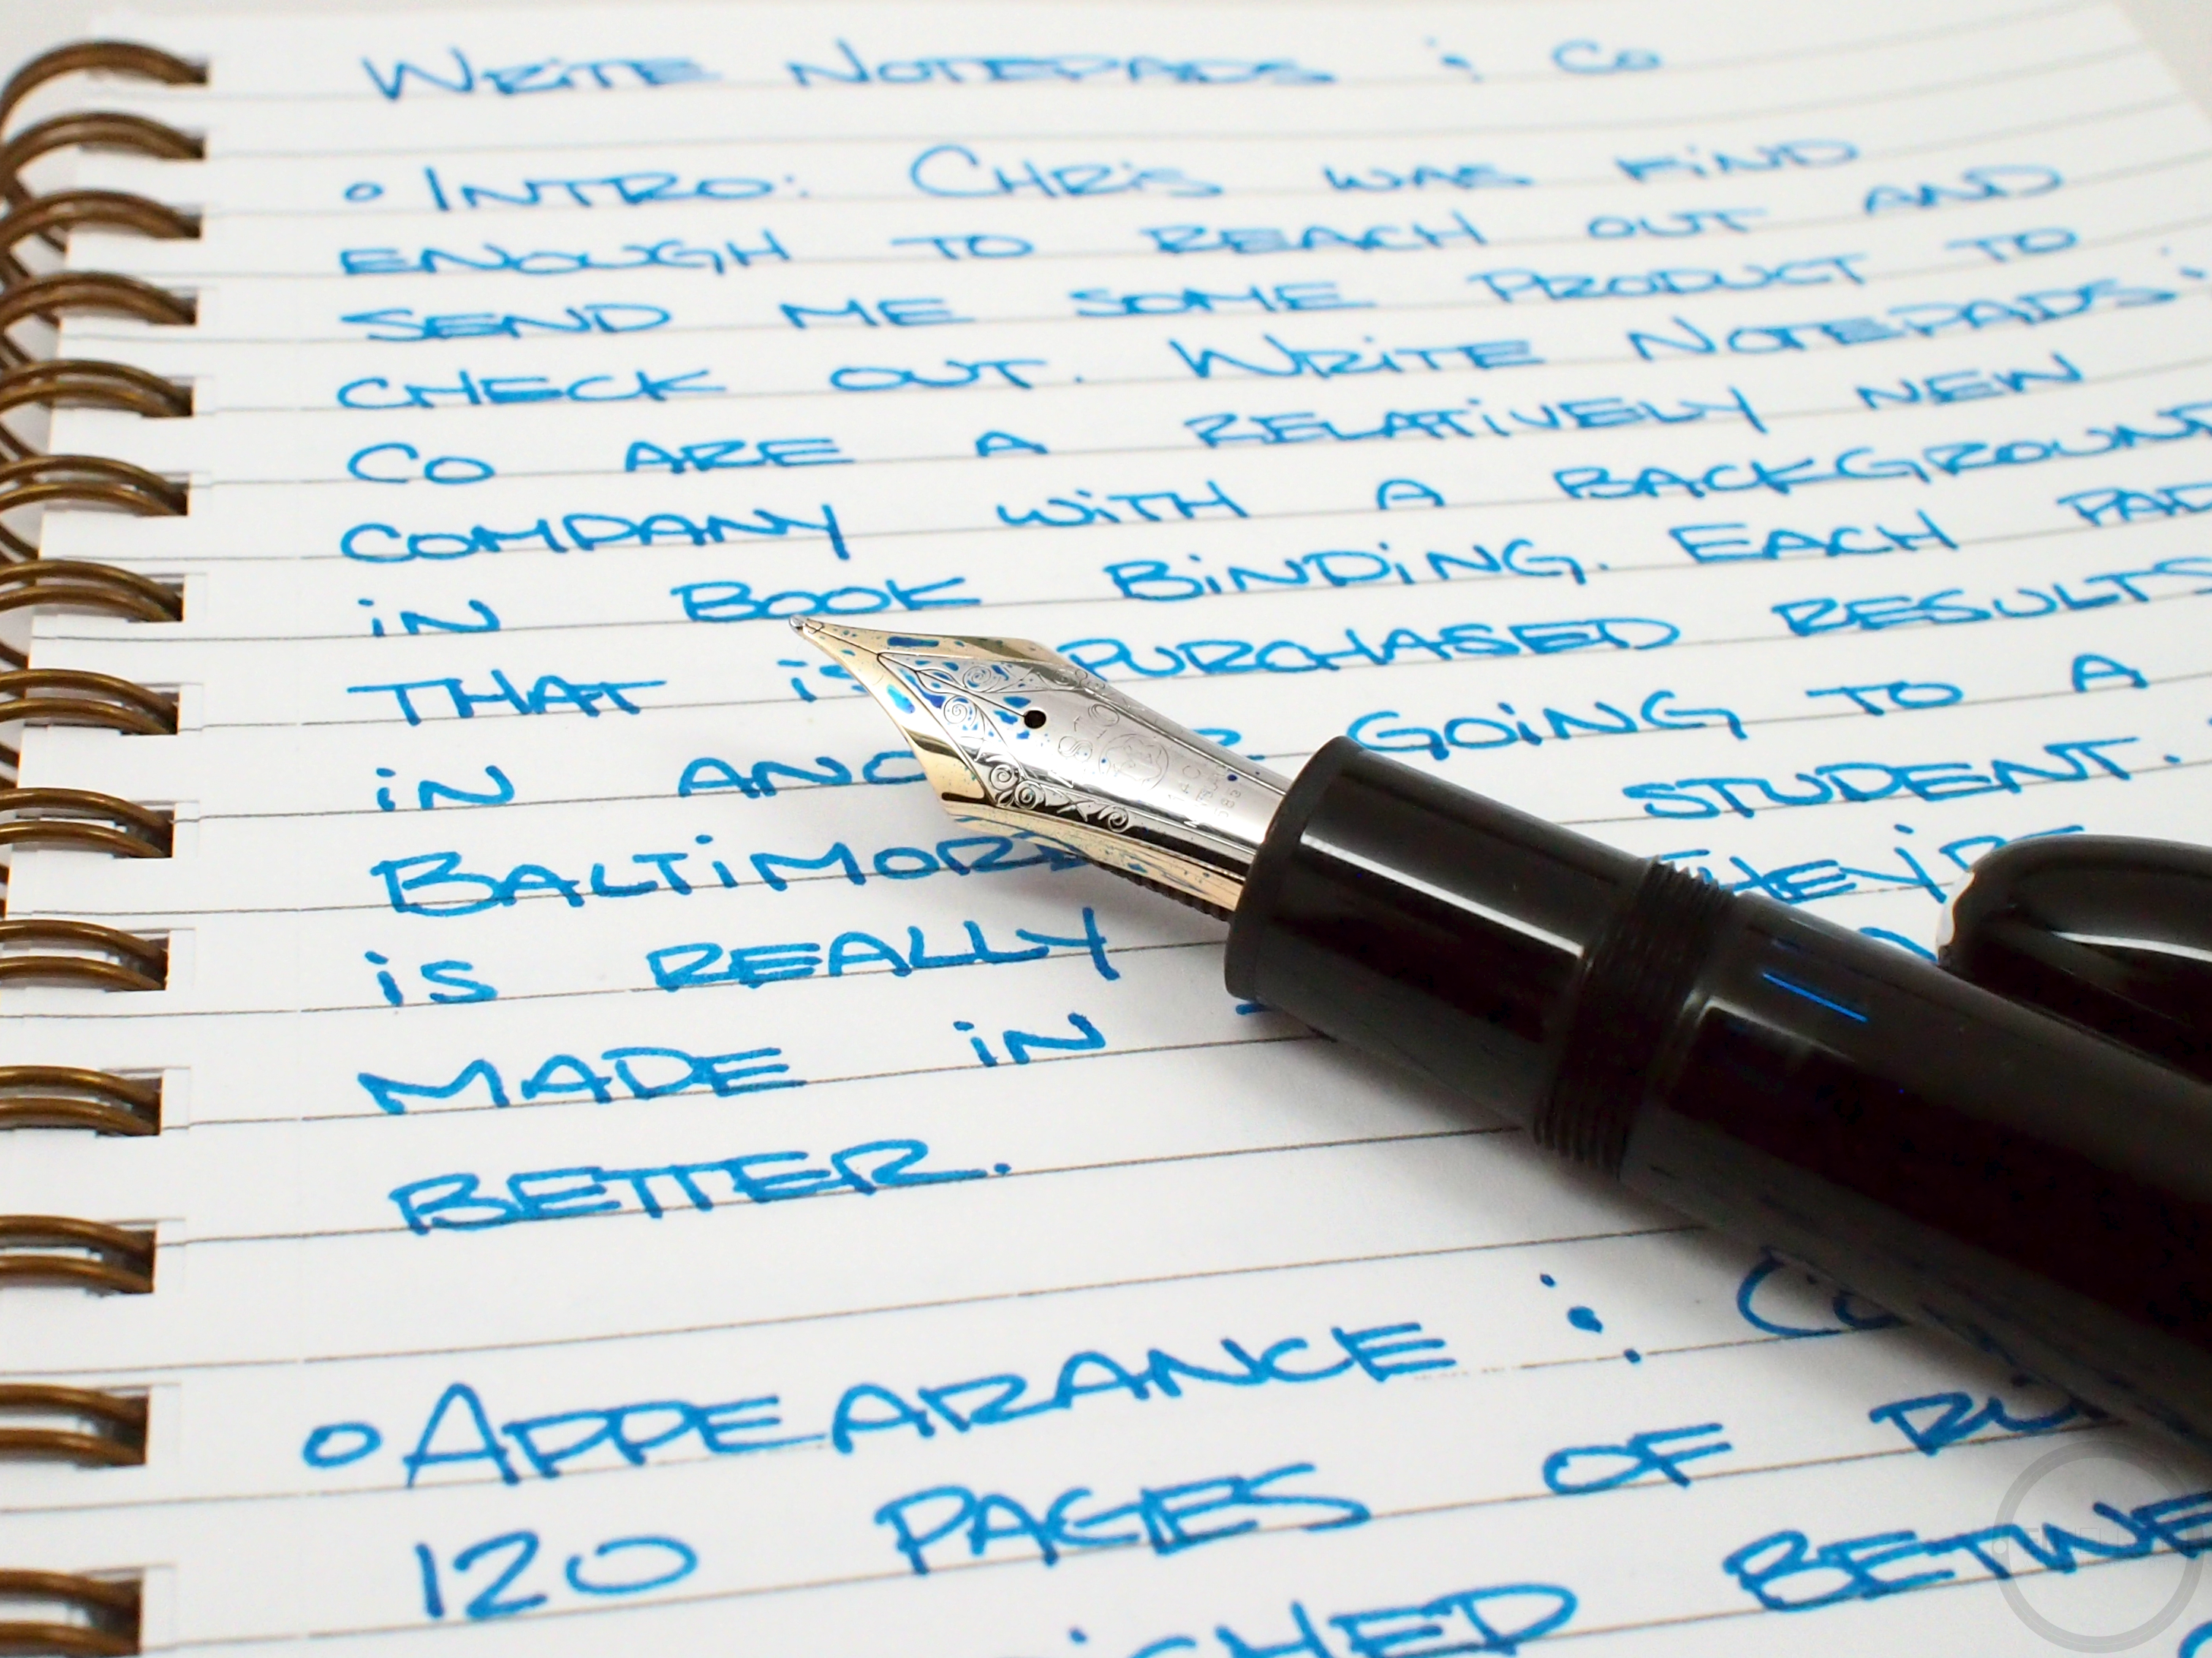 WRITE NOTEPADS & CO
• INTRO: CHRIS WAS KIND
ENOUGH TO REACH OUT AND
SEND ME SOME PRODUCT TO
CHECK OUT. WRITE NOTEPADS &
CO ARE A RELATIVELY NEW
COMPANY WITH A BACKGROUND
IN BOOK BINDING. EACH PAD
THAT IS PURCHASED RESULTS
IN GOING TO A
BALTIMORE STUDENT.
IS REALLY
MADE IN
BETTER.
• APPEARANCE:
120 PAGES OF